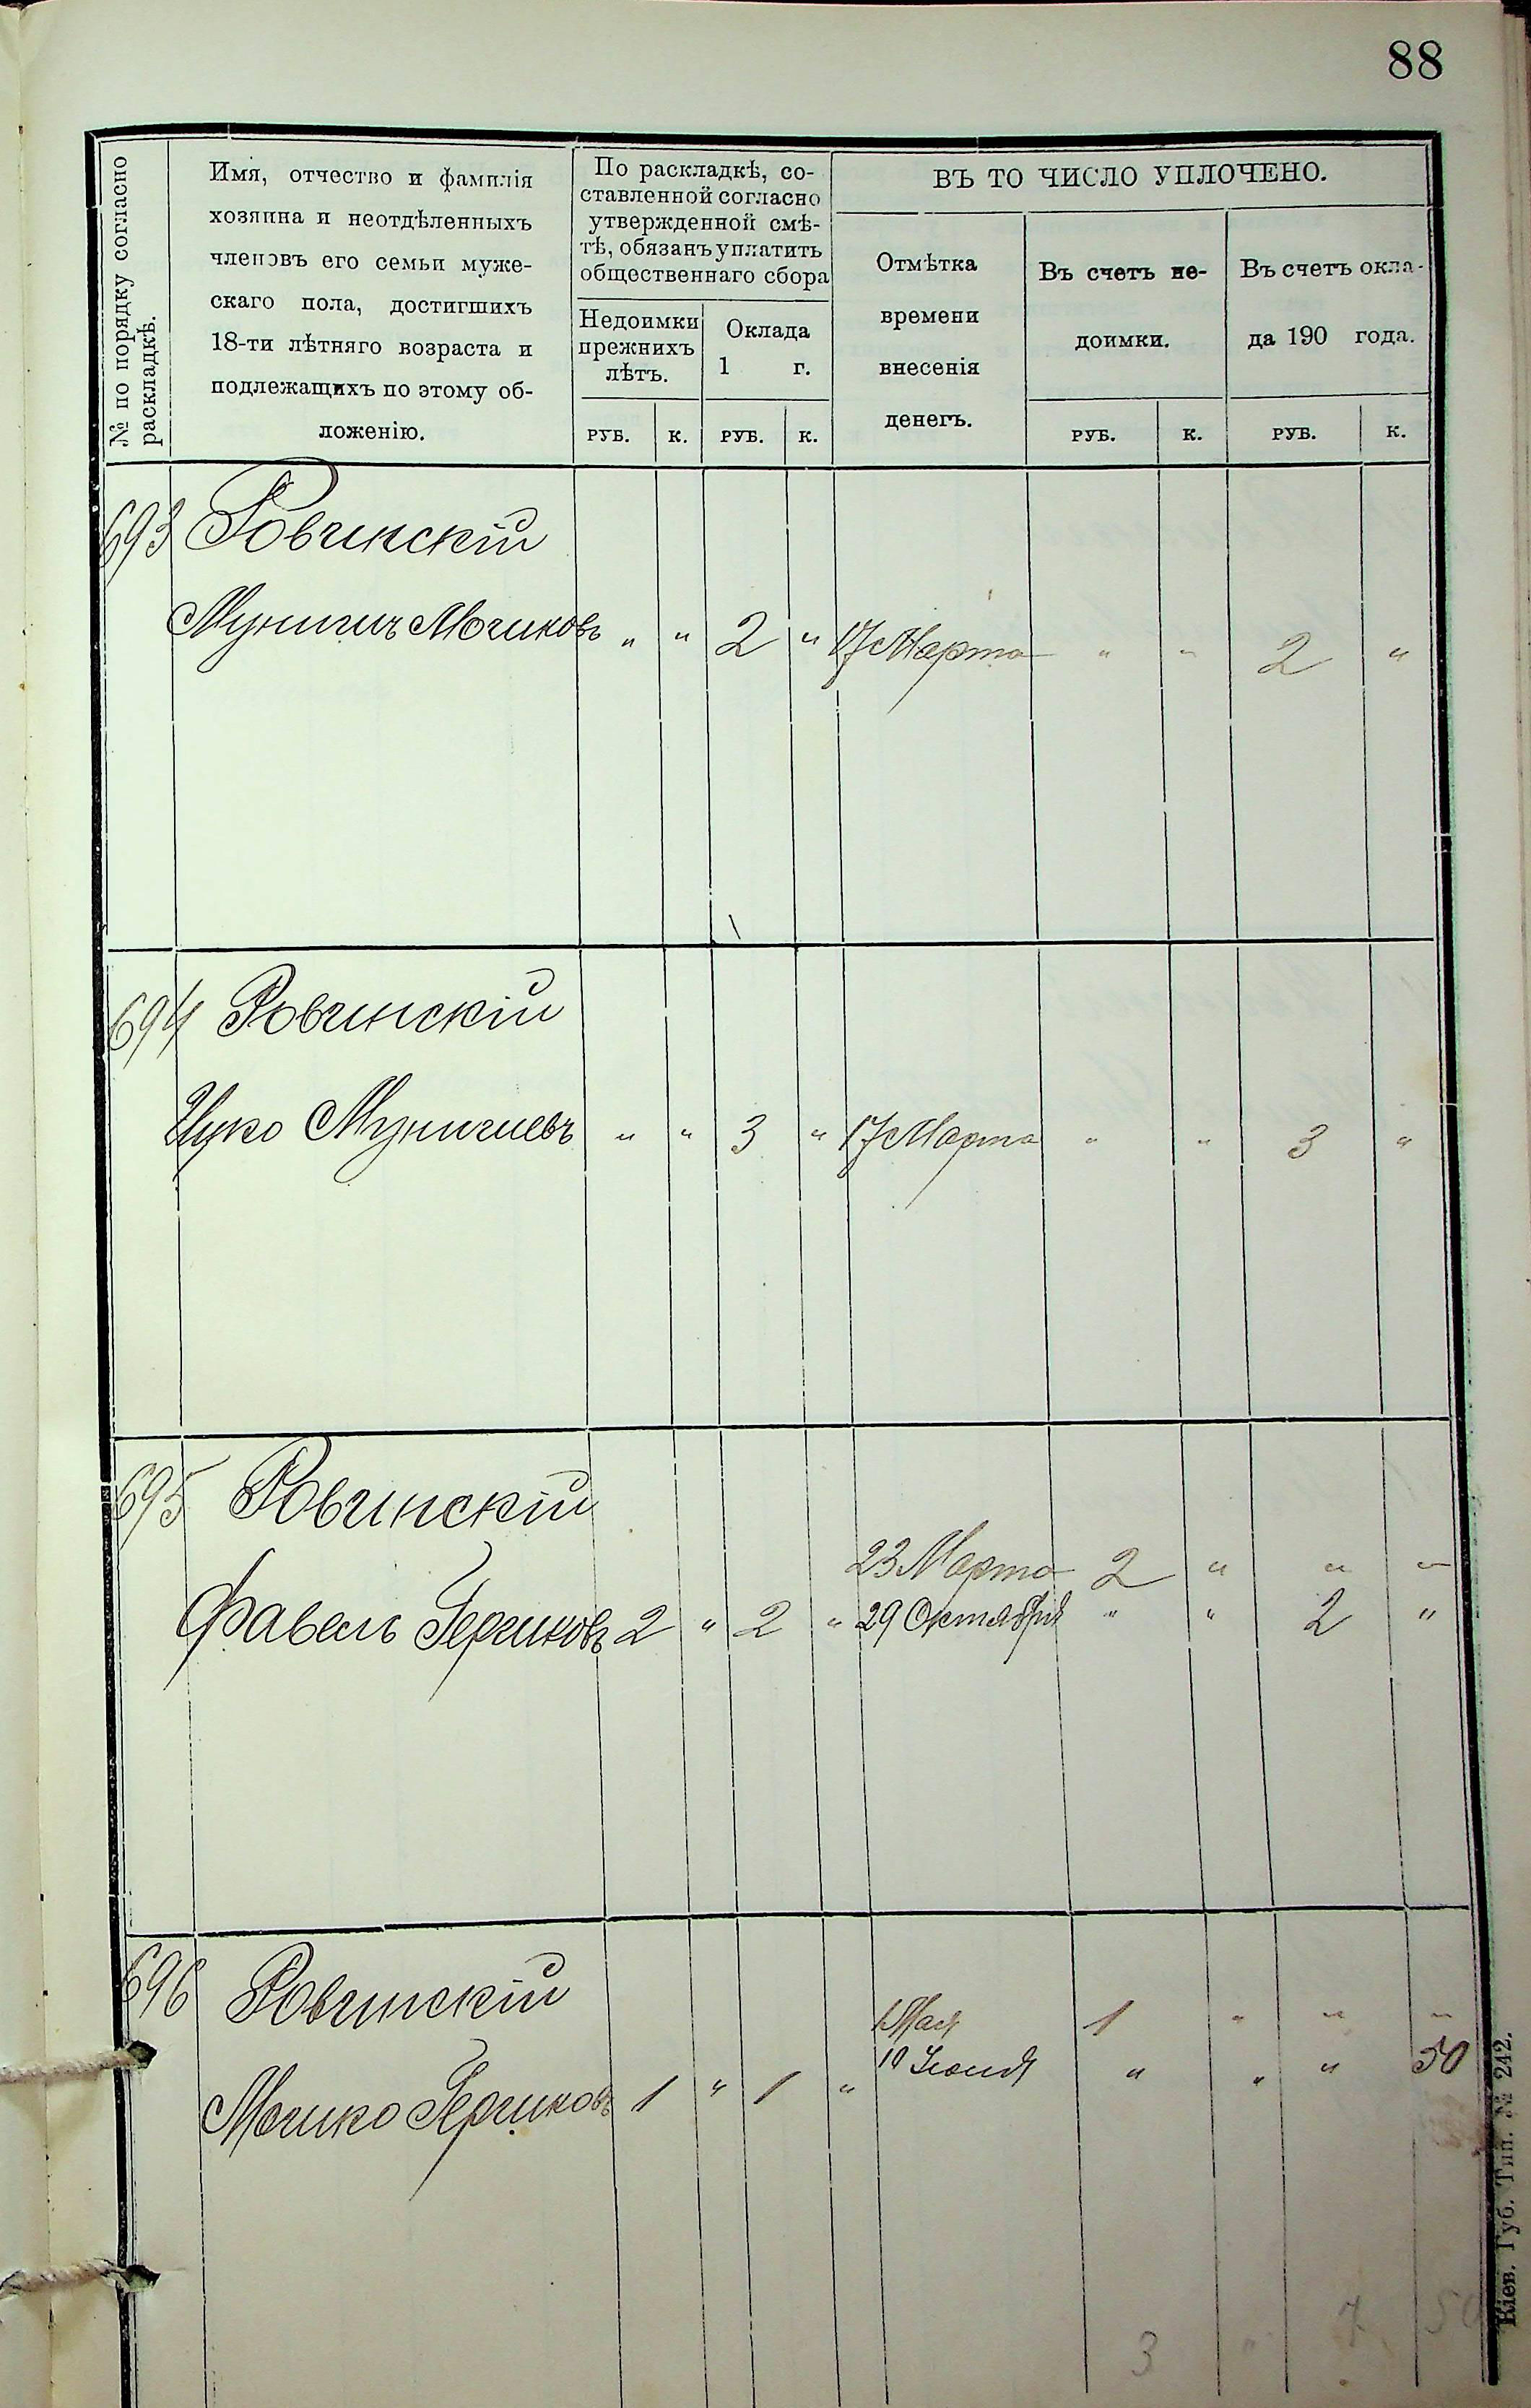 88
№ по порядку согласно раскладкѣ.
Имя, отчество и фамилія
хозяина и неотдѣленныхъ
членовъ его семьи муже-
скаго пола, достигшихъ
18-ти лѣтняго возраста и
подлежащихъ по этому об-
ложенію.
По раскладкѣ, со-
ставленной согласно
утвержденной смѣ-
тѣ, обязанъ уплатить
общественнаго сбора
Недоимки
прежнихъ
лѣтъ.
Оклада
1 г.
ВЪ ТО ЧИСЛО УПЛОЧЕНО.
Отмѣтка
времени
внесенія
денегъ.
Въ счетъ не-
доимки.
Въ счетъ окла-
да 190 года.
РУБ. К. РУБ. К. РУБ. К. РУБ. К.
693 Ровчинскій
Мошиковъ " " 2 " 17 Марта " " 2 "
694 Ровчинскій
Ицко " " 3 " 17 Марта " " 3 "
695 Ровчинскій
23 Марта 2 " " "
Файвель Гершковъ 2 " 2 " 29 Октября " " 2 "
696 Ровчинскій
1 Мая 1 " " "
10 Іюня " " " 50
Мошко Гершковъ 1 " 1 "
3 " 7 50
Кіев. Губ. Тип. № 242.